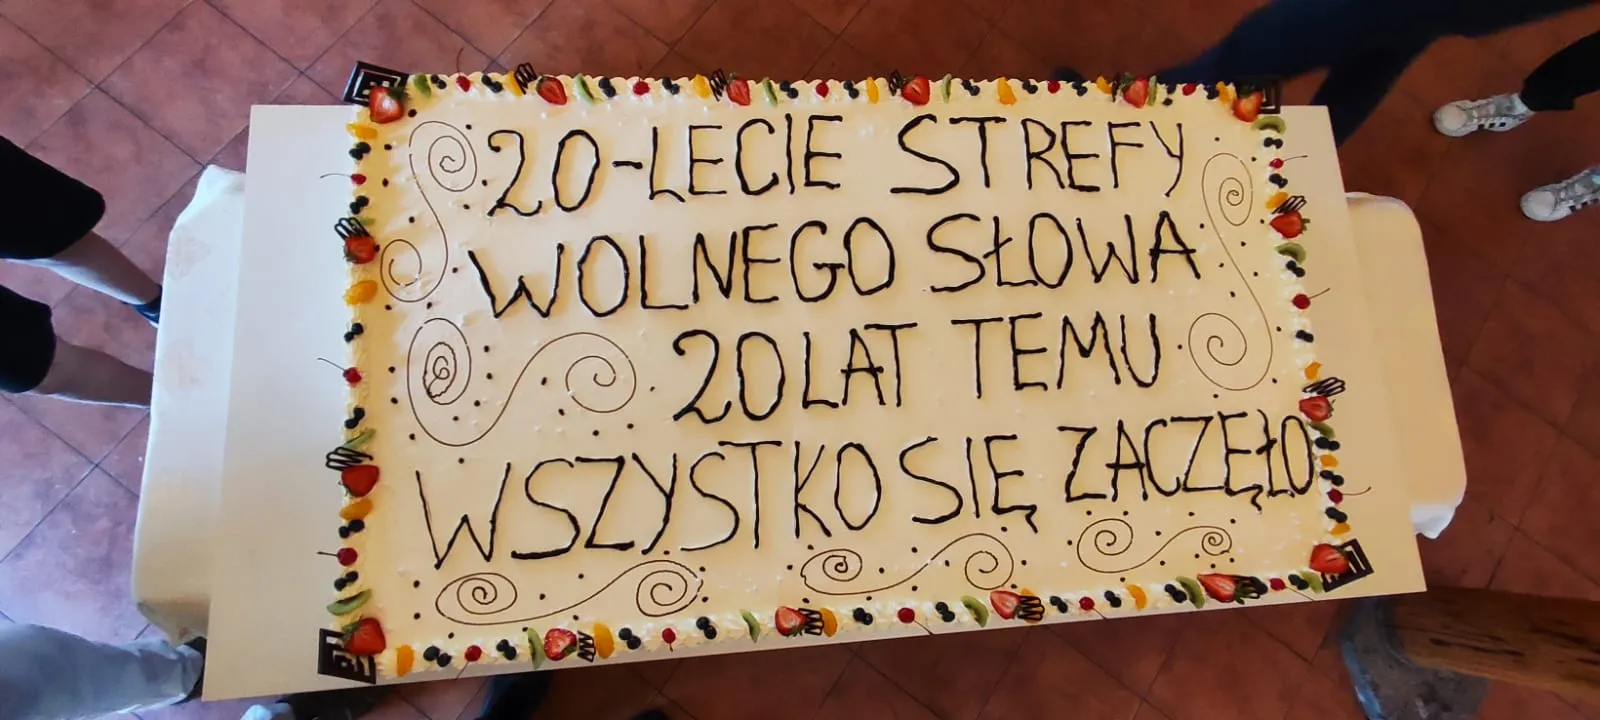 20-LECIE STREFY
WOLNEGO SŁOWA
20 LAT TEMU
WSZYSTKO SIĘ ZACZĘŁO